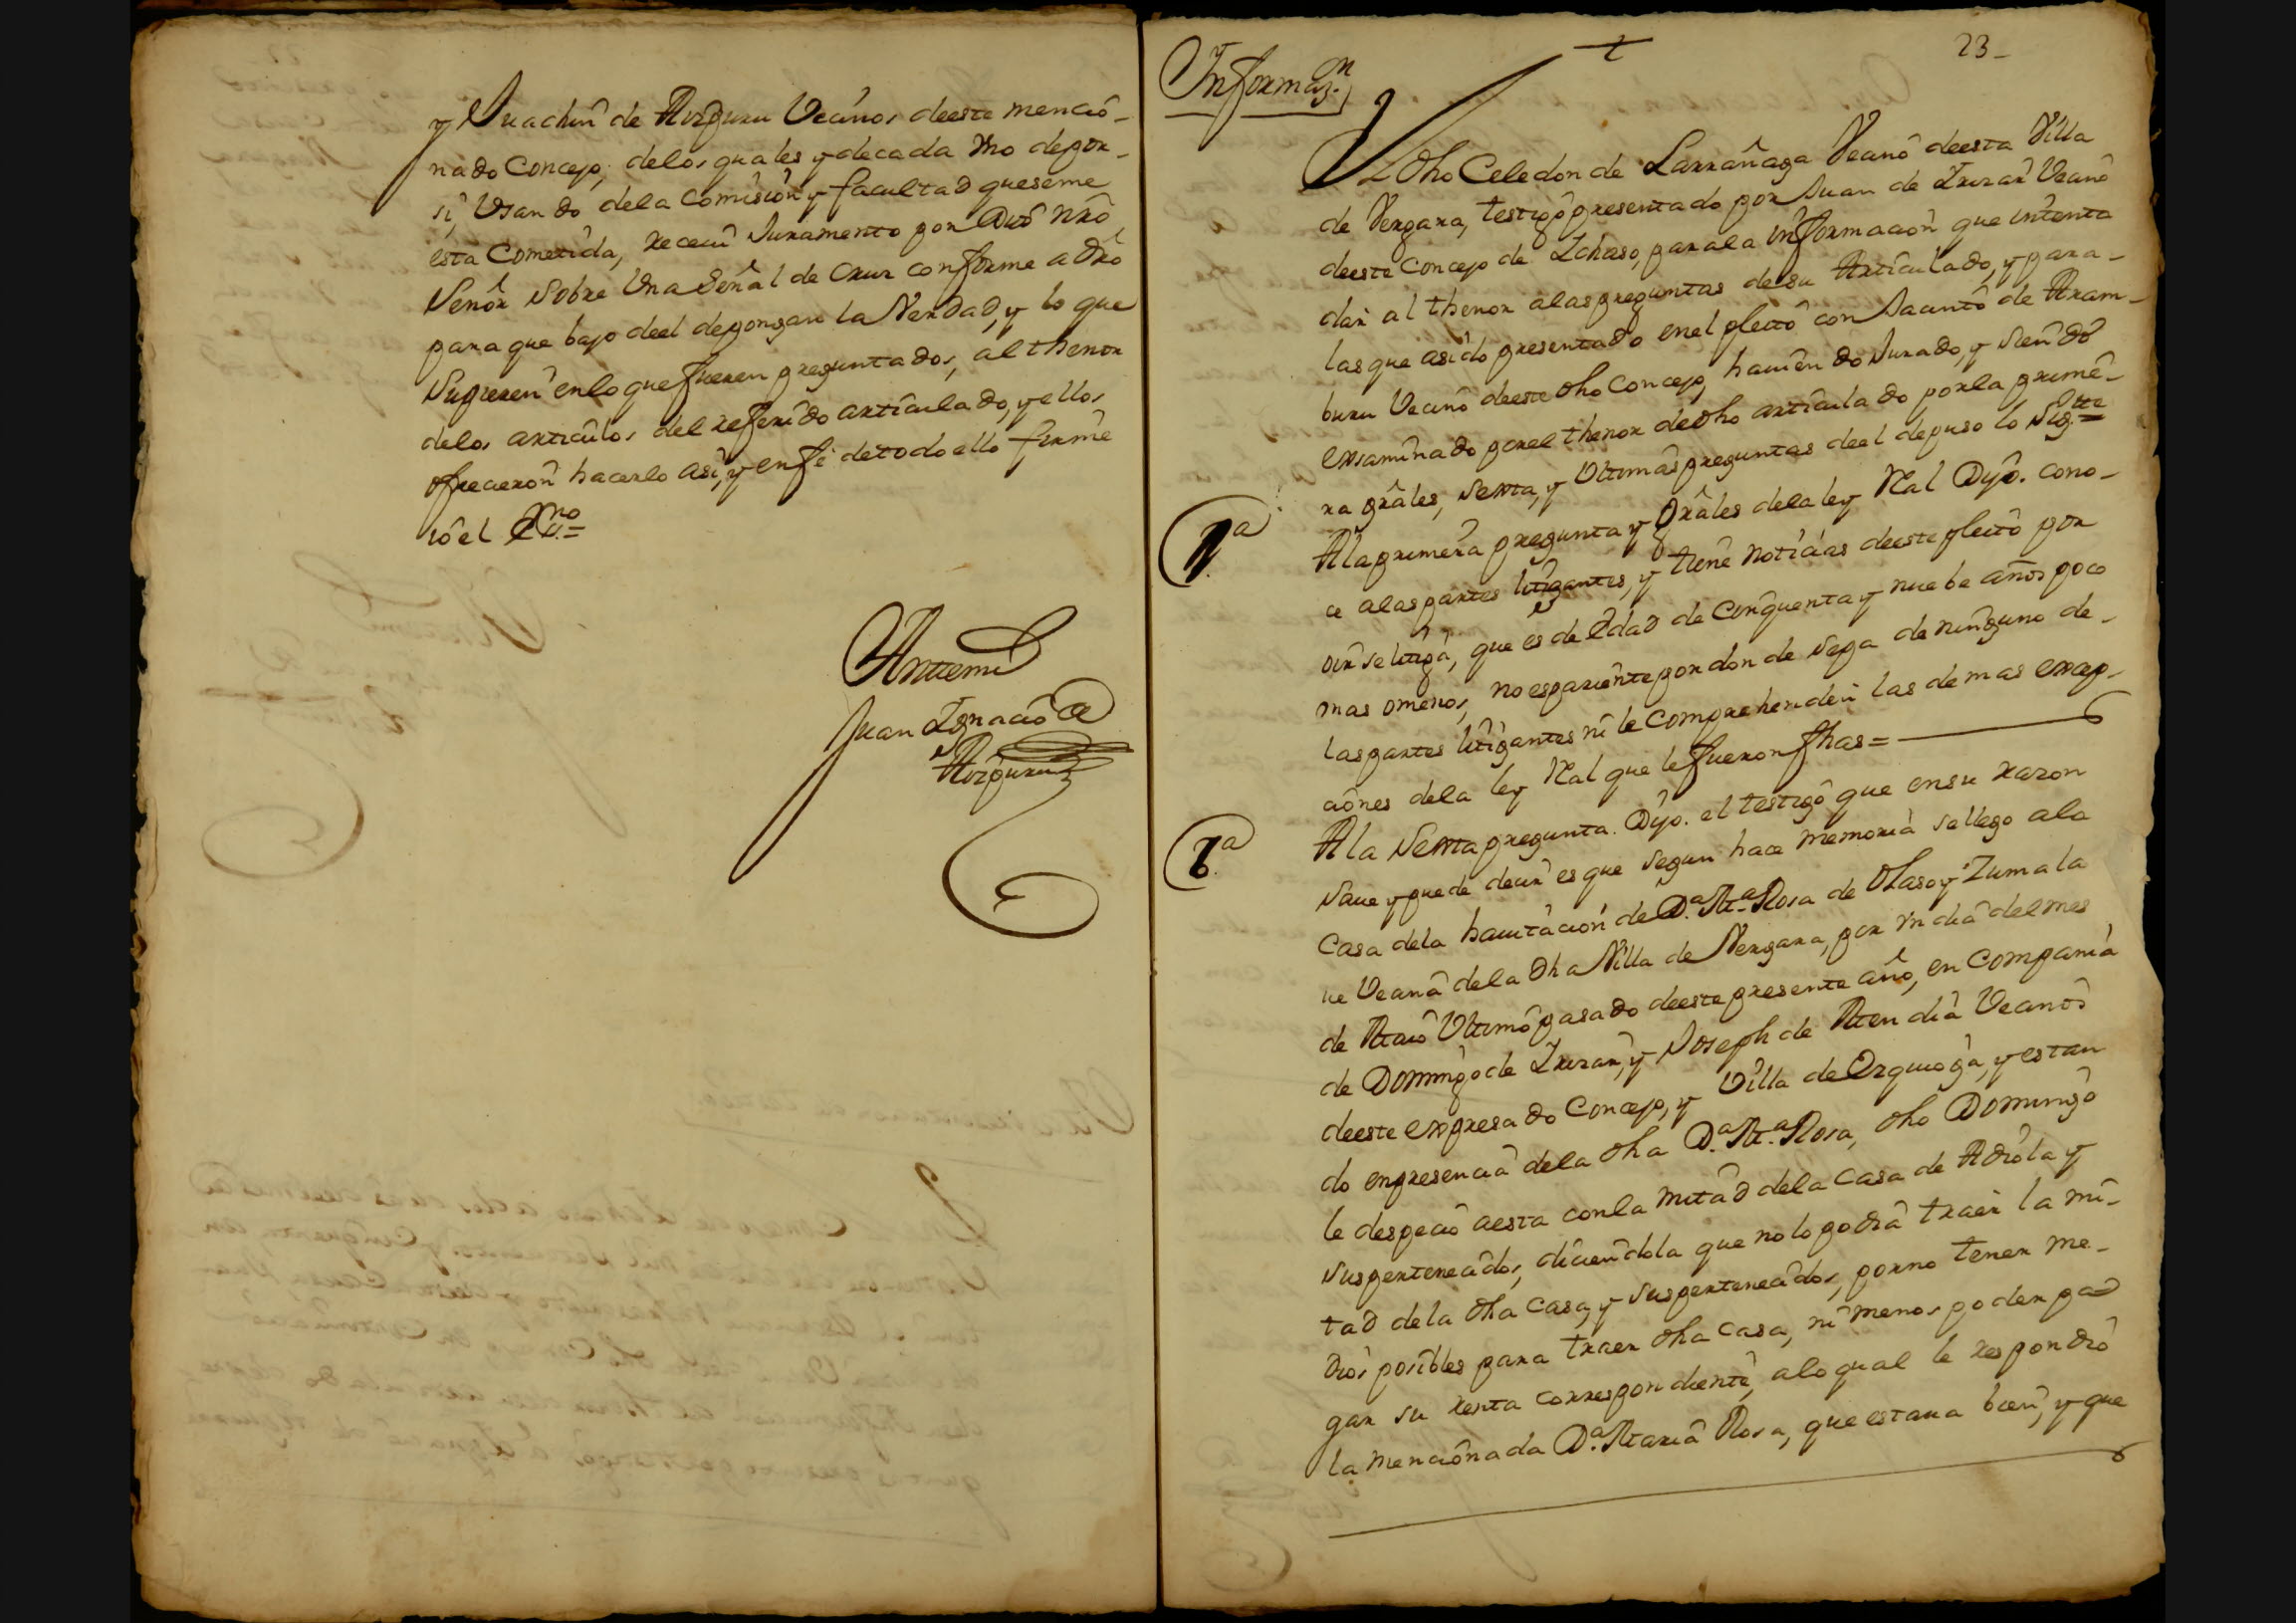 y Juachin de Aizpuru Vecinos deeste mencio-
nado Concejo, delos quales y decada Vno depor-
si, Usando dela Comision y facultad queseme
esta Cometida, receui Juramento por Dios Nrô
Señor sobre Vna Señal de Cruz conforme a drô
para que bajo deel depongan la Verdad, y lo que
Supieren enlo que fueren preguntados, al thenor
delos articulos del referido articulado, y ellos
ofrecieron hacerlo asi, y enfe detodo ello firme
io el Essno=
Antemi
Juan Ignacio de
Aizpuru
23-
Informazn.
El dho Celedon de Larrañaga Vecino deesta Villa
de Vergara, testigo presentado por Juan de Irizar Vecino
deeste Concejo de Ichaso, parala informacion que intenta
dar al thenor alas preguntas desu Articulado, y para-
las que asido presentado enel pleito con Jacinto de Aram-
buru Vecino deeste dho Concejo, hauiendo Jurado, y siendo
exsaminado porel thenor dedho articulado porla prime-
ra grâles, sexta, y Vltimas preguntas deel depuso lo Sigtte=
1a
Ala primera pregunta y grâles dela ley Real Dijo. cono-
ce alas partes litigantes, y tiene noticias deeste pleito por
oir se litiga, que es de Edad de Cinquenta y nuebe años poco
mas omenos, no es pariente por donde sepa de ninguno de-
las partes litigantes ni le Comprehenden las demas excep-
ciones dela ley Real que le fueron fhas=
6a
Ala Sexta pregunta. Dijo. el testigo que ensu razon
saue y puede decir es que segun hace memoria sellego ala
Casa dela hauitacion de Da. Ma. Rosa de Olaso y Zumala
ue Vecina dela dha Villa de Vergara, por Vn dia del mes
de Maio Vltimo pasado deeste presente año, en Compania
de Domingo de Irizar, y Joseph de Mendia Vecinos
deeste expresado Concejo, y Villa de Ezquioga, y estan
do enpresencia dela dha Da. Ma. Rosa, dho Domingo
le despecio aesta conla mitad dela Casa de Adiola y
sus pertenecidos, diciendola que no lo podia traer la mi-
tad dela dha Casa, y sus pertenecidos, porno tener me-
dios posibles para traer dha Casa, ni menos poder pa=
gar su renta correspondiente, alo qual le respondio
la mencionada Da. Maria Rosa, que estaua bien, y que